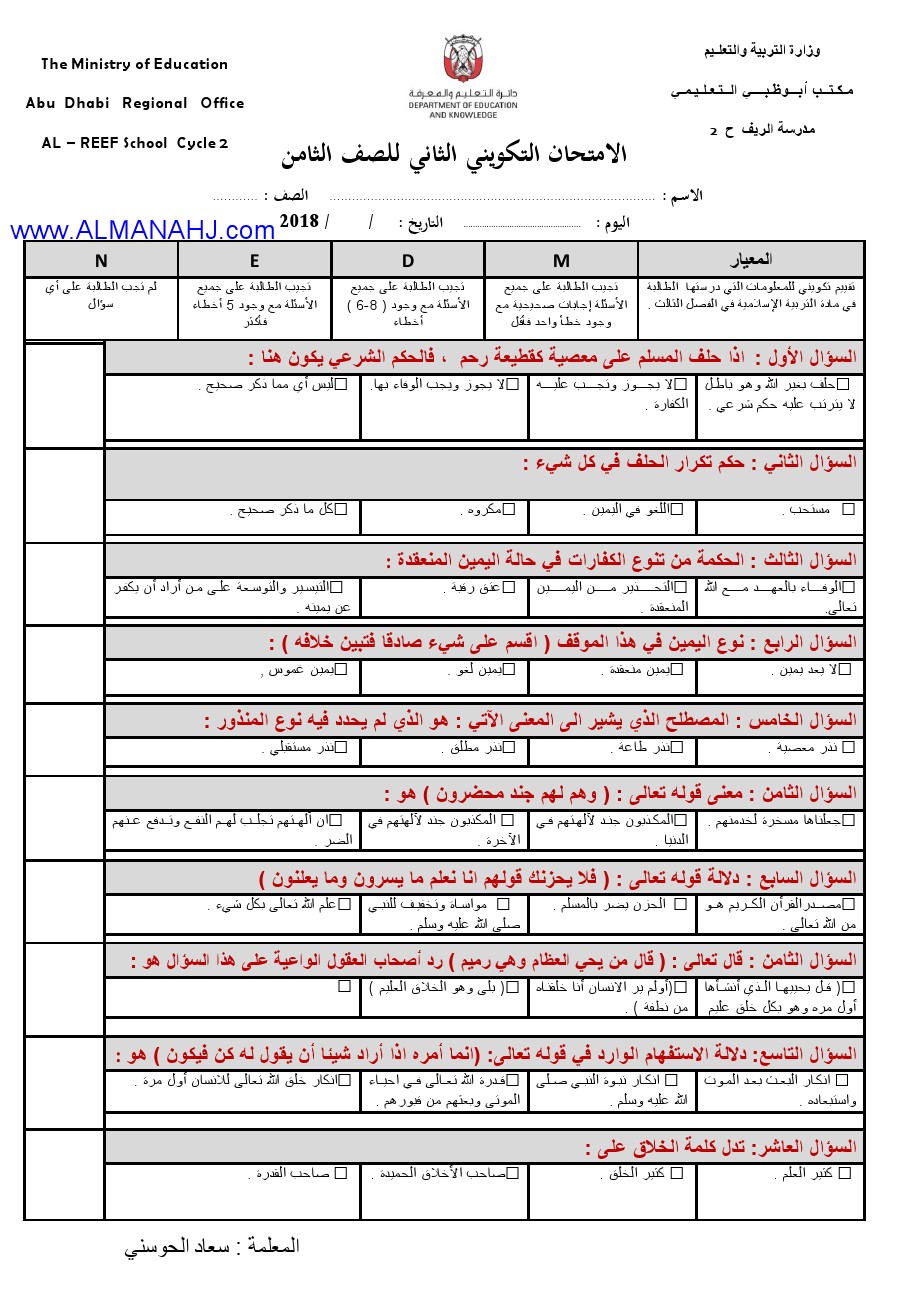 The Ministry of Education
Abu Dhabi Regional Office
AL – REEF School Cycle 2
دائرة التعليم والمعرفة
DEPARTMENT OF EDUCATION
AND KNOWLEDGE
وزارة التربية والتعليم
مكتب أبوظبي التعليمي
مدرسة الريف ح 2
الامتحان التكويني الثاني للصف الثامن
الاسم : ........................ الصف : ............
اليوم : ........................ التاريخ : / / 2018
www.ALMANAHJ.com
المعيار M D E N
تقييم تكويني للمعلومات التي درستها الطالبة في مادة التربية الإسلامية في الفصل الثالث .
تجيب الطالبة على جميع الأسئلة إجابات صحيحية مع وجود خطأ واحد فأقل
تجيب الطالبة على جميع الأسئلة مع وجود ( 8-6 ) أخطاء
تجيب الطالبة على جميع الأسئلة مع وجود 5 أخطاء فأكثر
لم تجب الطالبة على أي سؤال
السؤال الأول : اذا حلف المسلم على معصية كقطيعة رحم ، فالحكم الشرعي يكون هنا :
□حلف بغير الله وهو باطل لا يترتب عليه حكم شرعي .
□لا يجوز وتجب عليه الكفارة .
□لا يجوز ويجب الوفاء بها.
□ليس أي مما ذكر صحيح .
السؤال الثاني : حكم تكرار الحلف في كل شيء :
□ مستحب .
□اللغو في اليمين .
□مكروه .
□كل ما ذكر صحيح .
السؤال الثالث : الحكمة من تنوع الكفارات في حالة اليمين المنعقدة :
□الوفاء بالعهد مع الله تعالى.
□التحذير من اليمين المنعقدة .
□عتق رقبة .
□التيسير والتوسعة على من أراد أن يكفر عن يمينه .
السؤال الرابع : نوع اليمين في هذا الموقف ( اقسم على شيء صادقا فتبين خلافه ) :
□لا يعد يمين .
□يمين منعقدة .
□يمين لغو .
□يمين غموس ,
السؤال الخامس : المصطلح الذي يشير الى المعنى الآتي : هو الذي لم يحدد فيه نوع المنذور :
□ نذر معصية .
□نذر طاعة .
□نذر مطلق .
□نذر مستقبلي .
السؤال الثامن : معنى قوله تعالى : ( وهم لهم جند محضرون ) هو :
□جعلناها مسخرة لخدمتهم .
□المكذبون جند لآلهتهم في الدنيا .
□ المكذبون جند لآلهتهم في الآخرة .
□ان آلهتهم تجلب لهم النفع وتدفع عنهم الضر .
السؤال السابع : دلالة قوله تعالى : ( فلا يحزنك قولهم انا نعلم ما يسرون وما يعلنون )
□مصدرالقرآن الكريم هو من الله تعالى .
□ الحزن يضر بالمسلم .
□ مواساة وتخفيف للنبي صلى الله عليه وسلم .
□علم الله تعالى بكل شيء .
السؤال الثامن : قال تعالى : ( قال من يحي العظام وهي رميم ) رد أصحاب العقول الواعية على هذا السؤال هو :
□( قل يحييها الذي أنشأها أول مره وهو بكل خلق عليم
□(أولم ير الانسان أنا خلقناه من نطفة ) .
□( بلى وهو الخلاق العليم )
□
السؤال التاسع: دلالة الاستفهام الوارد في قوله تعالى: (انما أمره اذا أراد شيئا أن يقول له كن فيكون ) هو :
□ انكار البعث بعد الموت واستبعاده .
□ انكار نبوة النبي صلى الله عليه وسلم .
□قدرة الله تعالى في احياء الموتى وبعثهم من قبورهم .
□انكار خلق الله تعالى للانسان أول مرة .
السؤال العاشر: تدل كلمة الخلاق على :
□ كثير العلم .
□ كثير الخلق .
□صاحب الأخلاق الحميدة .
□ صاحب القدرة .
المعلمة : سعاد الحوسني